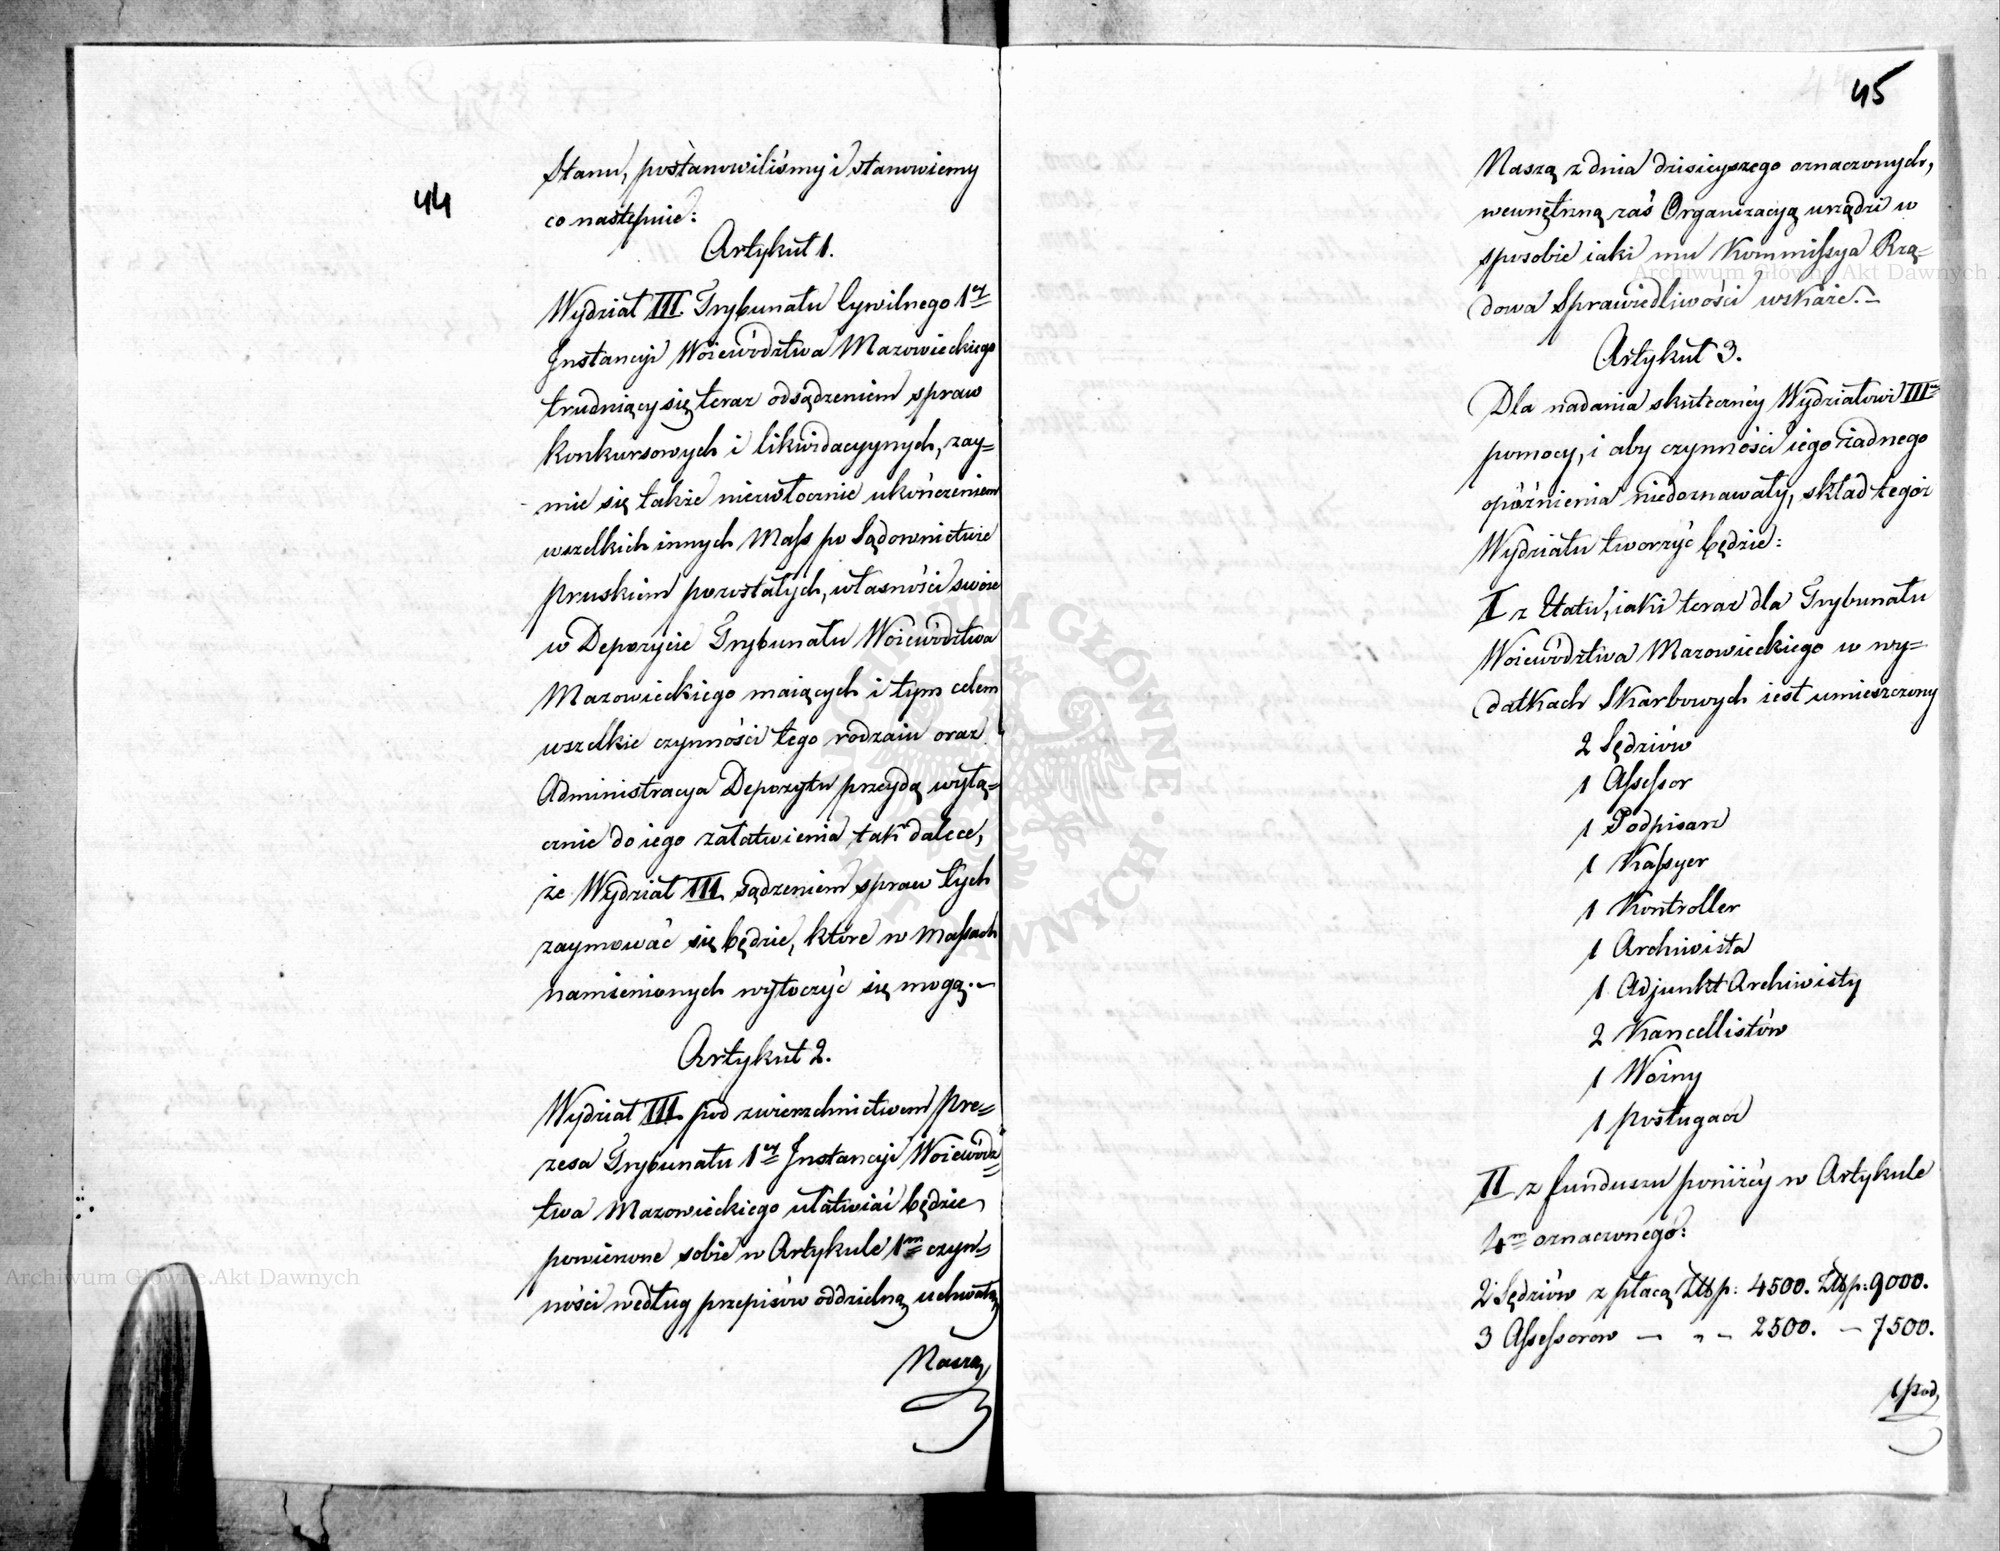 44
Stanu, postanowiliśmy i stanowiemy
co następuie:
Artykuł 1.
Wydział III. Trybunału Cywilnego 1ey
Instancyi Woiewództwa Mazowieckiego
trudniący się teraz odsądzeniem spraw
konkursowych i likwidacyynych, zay=
mie się także niezwłocznie ukończeniem
wszelkich innych Mass po Sądownictwie
pruskiem pozostałych, własności swoie
w Depozycie Trybunału Woiewództwa
Mazowieckiego maiących i tym celem
wszelkie czynności tego rodzaiu oraz
Administracya Depozytu przeydą wyłą=
cznie do iego załatwienia tak dalece,
że Wydział III sądzeniem spraw tych
zaymować się będzie, które w Massach
namienionych wytoczyć się mogą.–
Artykuł 2.
Wydział III pod zwierzchnictwem Pre=
zesa Trybunału 1ey Instancyi Woiewódz=
twa Mazowieckiego ułatwiać będzie
powierzone sobie w Artykule 1m czyn=
ności według przepisów oddzielną uchwałą
Naszą
45
Naszą z dnia dzisieyszego oznaczonych,
wewnętrzną zaś Organizacyą urządzi w
sposobie iaki mu Kommissya Rzą=
dowa Sprawiedliwości wskaże.–
Artykuł 3.
Dla nadania skuteczney Wydziałowi III
pomocy, i aby czynności iego żadnego
opóźnienia niedoznawały, skład tegoż
Wydziału tworzyć będzie:
I z Etatu, iaki teraz dla Trybunału
Woiewództwa Mazowieckiego w wy=
datkach Skarbowych iest umieszczony
2 Sędziów
1 Assessor
1 Podpisarz
1 Kassyer
1 Kontroller
1 Archiwista
1 Adjunkt Archiwisty
2 Kancellistów
1 Woźny
1 posługacz
II z funduszu poniżey w Artykule
4m oznaczonego:
2 Sędziów z płacą Złłp: 4500. Złłp: 9000.
3 Assessorow — „ – 2500. — 7500.
1 pod,
Archiwum Główne Akt Dawnych
Archiwum Główne Akt Dawnych
ARCHIWUM GŁÓWNE AKT DAWNYCH